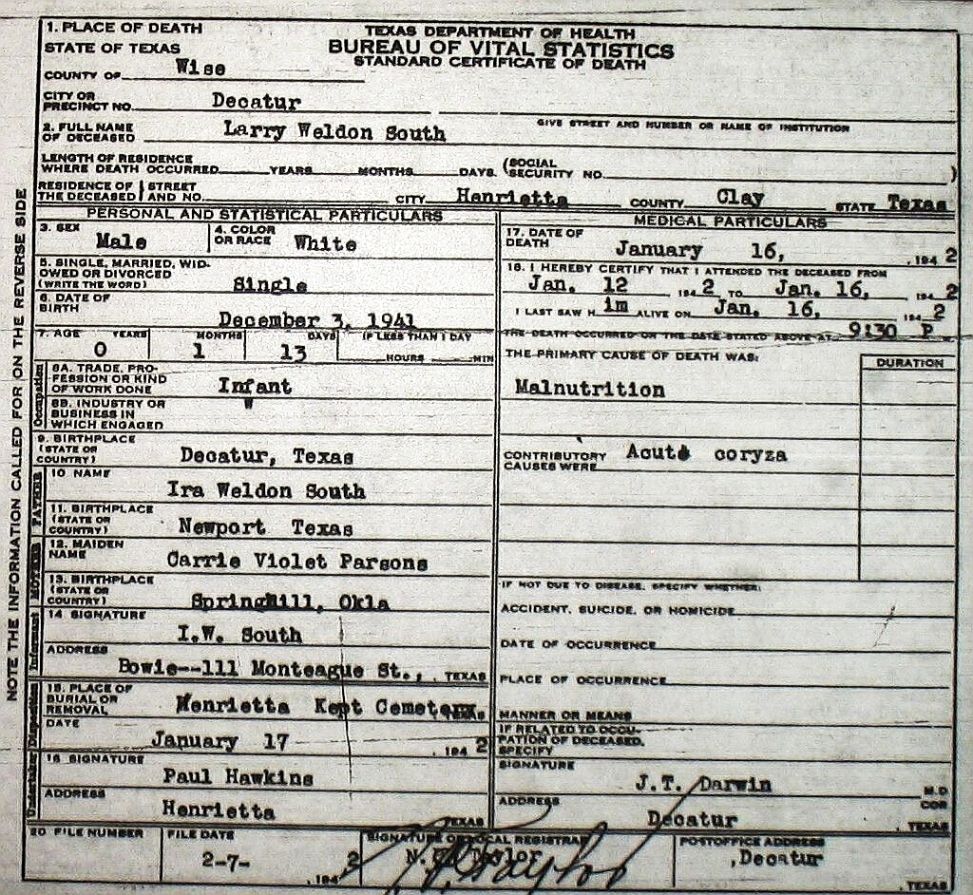 NOTE THE INFORMATION CALLED FOR ON THE REVERSE SIDE
TEXAS DEPARTMENT OF HEALTH
BUREAU OF VITAL STATISTICS
STANDARD CERTIFICATE OF DEATH
1. PLACE OF DEATH
STATE OF TEXAS
COUNTY OF Wise
CITY OR
PRECINCT NO. Decatur
GIVE STREET AND NUMBER OR NAME OF INSTITUTION
2. FULL NAME
OF DECEASED Larry Weldon South
LENGTH OF RESIDENCE
WHERE DEATH OCCURRED YEARS MONTHS DAYS. (SOCIAL
SECURITY NO. )
RESIDENCE OF STREET
THE DECEASED AND NO. CITY Henrietta COUNTY Clay STATE Texas
PERSONAL AND STATISTICAL PARTICULARS
3. SEX Male
4. COLOR
OR RACE White
5. SINGLE, MARRIED, WID-
OWED OR DIVORCED
(WRITE THE WORD) Single
6. DATE OF
BIRTH December 3, 1941
7. AGE YEARS MONTHS DAYS IF LESS THAN 1 DAY
0 1 13 HOURS MIN
Occupation
8A. TRADE, PRO-
FESSION OR KIND
OF WORK DONE Infant
8B. INDUSTRY OR
BUSINESS IN
WHICH ENGAGED
9. BIRTHPLACE
(STATE OR
COUNTRY) Decatur, Texas
FATHER
10 NAME Ira Weldon South
11. BIRTHPLACE
(STATE OR
COUNTRY) Newport Texas
MOTHER
12. MAIDEN
NAME Carrie Violet Parsons
13. BIRTHPLACE
(STATE OR
COUNTRY) Springhill, Okla
Informant
14 SIGNATURE I.W. South
ADDRESS Bowie--111 Monteague St., TEXAS
Undertaker Disposition
15. PLACE OF
BURIAL OR
REMOVAL Henrietta Kept Cemetery TEXAS
DATE January 17 , 194 2
16 SIGNATURE Paul Hawkins
ADDRESS Henrietta TEXAS
MEDICAL PARTICULARS
17. DATE OF
DEATH January 16, , 194 2
18. I HEREBY CERTIFY THAT I ATTENDED THE DECEASED FROM
Jan. 12 194 2 TO Jan. 16, , 194 2
I LAST SAW H im ALIVE ON Jan. 16, 194 2
THE DEATH OCCURRED ON THE DATE STATED ABOVE AT 9:30 P M.
THE PRIMARY CAUSE OF DEATH WAS: DURATION
Malnutrition
CONTRIBUTORY
CAUSES WERE Acute coryza
IF NOT DUE TO DISEASE, SPECIFY WHETHER:
ACCIDENT, SUICIDE, OR HOMICIDE
DATE OF OCCURRENCE
PLACE OF OCCURRENCE
MANNER OR MEANS
IF RELATED TO OCCU-
PATION OF DECEASED,
SPECIFY
SIGNATURE J.T. Darwin M.D
COR
ADDRESS Decatur , TEXAS
20 FILE NUMBER
FILE DATE
2-7- , 194 2
SIGNATURE OF LOCAL REGISTRAR
Taylor
POSTOFFICE ADDRESS
,Decatur
, TEXAS